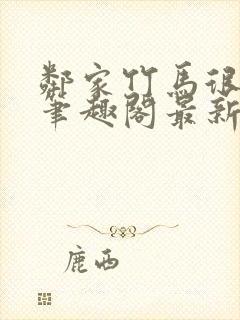 鄰家竹馬很
筆趣閣最新
鹿西